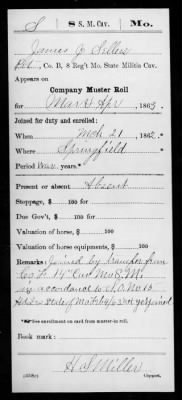 S | 8 S. M. Cav. | Mo.
James C Sellers
Pvt., Co. B, 8 Reg't Mo. State Militia Cav.
Appears on
Company Muster Roll
for Mar & Apr, 1863.
Joined for duty and enrolled:
When Mch 21, 1862.*
Where Springfield
Period years.*
Present or absent Absent
Stoppage, $ 100 for
Due Gov't, $ 100 for
Valuation of horse, $ 100
Valuation of horse equipments, $ 100
Remarks: Joined by transfer from
Co. 14" Cav Mo S. M.
in accordance to S. O. No 15
Hd Qrs State of Mo Feb 4/63 not yet joined
*See enrollment on card from muster-in roll.
Book mark:
H S Miller
(358c) Copyist.